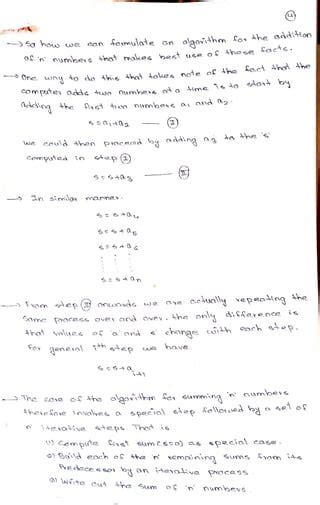 4
→ So how we can formulate an algorithm for the addition
of 'n' numbers that makes best use of these facts.
→ One way to do this that takes note of the fact that the
computer adds two numbers at a time is to start by
adding the first two numbers a₁ and a₂.
s=a₁+a₂ — ①
we could then proceed by adding a₃ to the 's'
computed in step ①
s=s+a₃ — Ⅱ
→ In similar manner.
s=s+a₄
s=s+a₅
s=s+a₆
⋮ ⋮ ⋮
s=s+aₙ
→ From step Ⅱ onwards we are actually repeating the
same process over and over. the only difference is
that values of 'a' and 's' change with each step.
For general iᵗʰ step we have
s=s+aᵢ₊₁
→ The core of the algorithm for summing 'n' numbers
therefore involves a special step followed by a set of
'n' iterative steps. That is
1) Compute first sum(s=0) as special case.
2) Build each of the 'n' remaining sums from its
Predecessor by an iterative process.
3) Write out the sum of 'n' numbers.